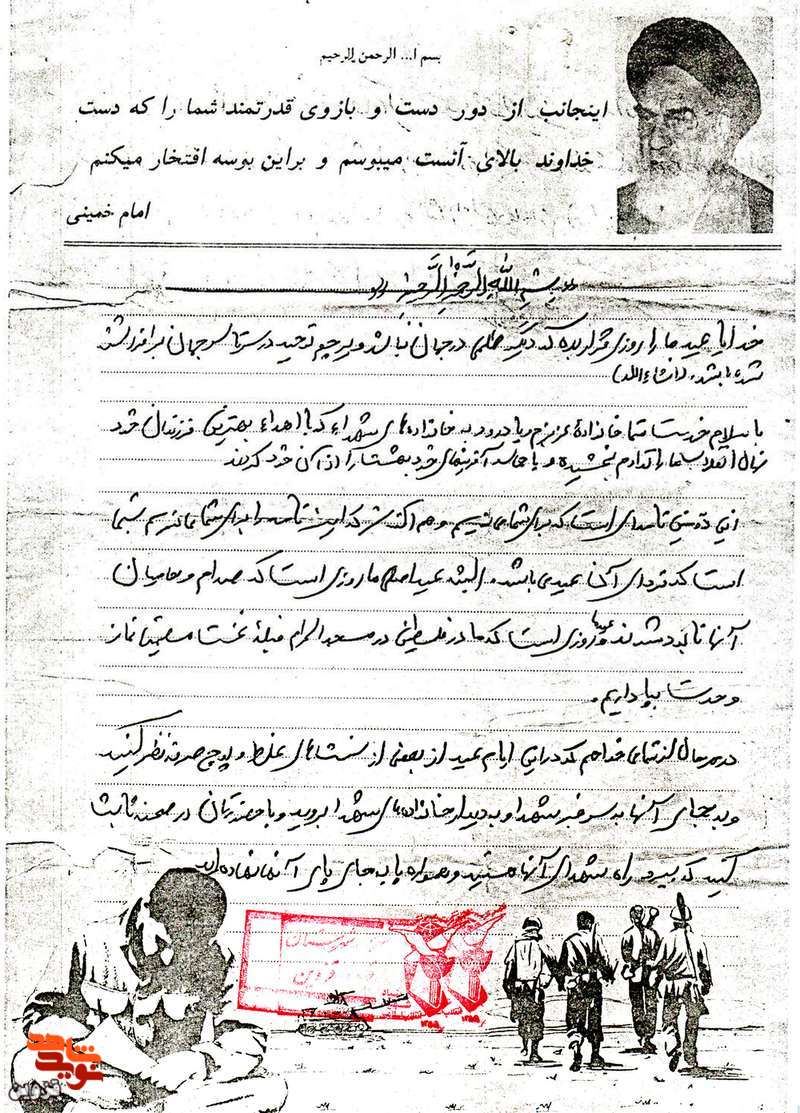 بسم ا... الرحمن الرحیم
اینجانب از دور دست و بازوی قدرتمند شما را که دست
خداوند بالای آنست میبوسم و براین بوسه افتخار میکنم
امام خمینی
بسم الله الرحمن الرحیم
خدایا عید ما را روزی قرار بده که دیگر ظلمی در جهان نباشد و پرچم توحید در سرتاسر جهان برافراشته
شده باشد. (انشاءالله)
با سلام خدمت شما خانواده عزیزم و با درود به خانواده‌های شهداء که با اهداء بهترین فرزندان خود
نهال انقلاب اسلامی را تداوم بخشیده و با حماسه آفرینی‌های خود بهشت را از آن خود کردند
این دومین نامه‌ای است که برای شما می‌نویسم و هم اکنون که این نامه را برای شما می‌نویسم شبی
است که فردای آن عید می‌باشد. البته عید اصلی ما روزی است که صدام و حامیان
آنها نابود شدند و عید ما روزی است که ما در فلسطین در مسجد الحرام قبلهٔ نخست مسلمین نماز
وحدت بپا داریم.
در هر حال از شما می خواهم که در این ایام عید از بعضی از سنت‌های غلط و پوچ صرف نظر کنید
و به جای آنها به سر قبر شهدا و به دیدار خانواده‌های شهدا بروید و با حضورتان در صحنه ثابت
کنید که پیرو راه شهدای آنها هستید و همواره پا به جای پای آنها نهاده‌اید
شهرستان
قزوین
نوید شاهد
قزوین